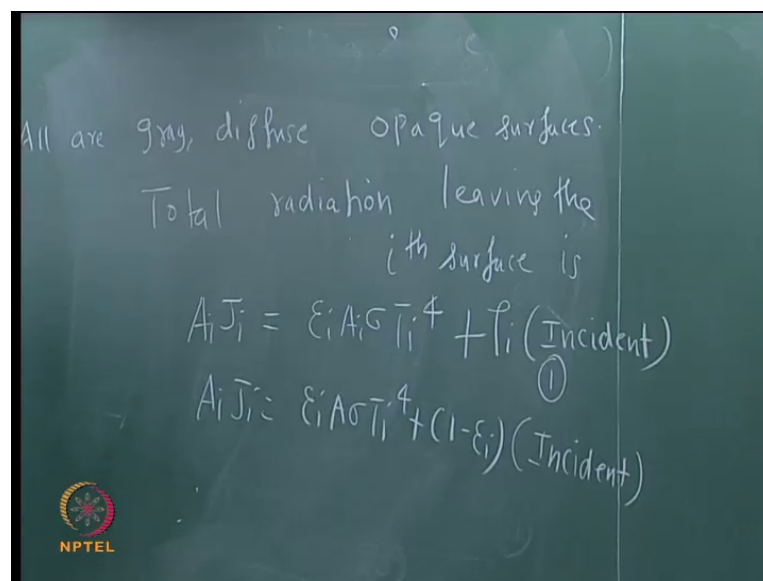 All are gray, diffuse opaque surfaces.
Total radiation leaving the
ith surface is
AiJi = εiAiσTi⁴ + ρi (Incident)
①
AiJi = εiAσTi⁴ + (1-εi) (Incident)
NPTEL